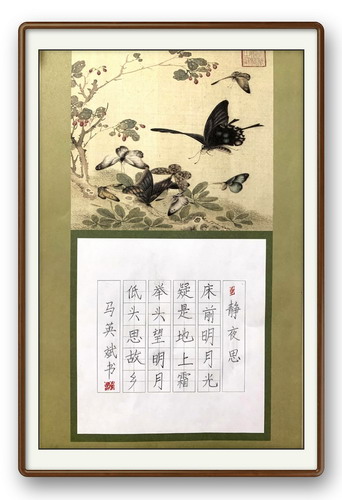 静夜思
床前明月光
疑是地上霜
举头望明月
低头思故乡
马英斌书